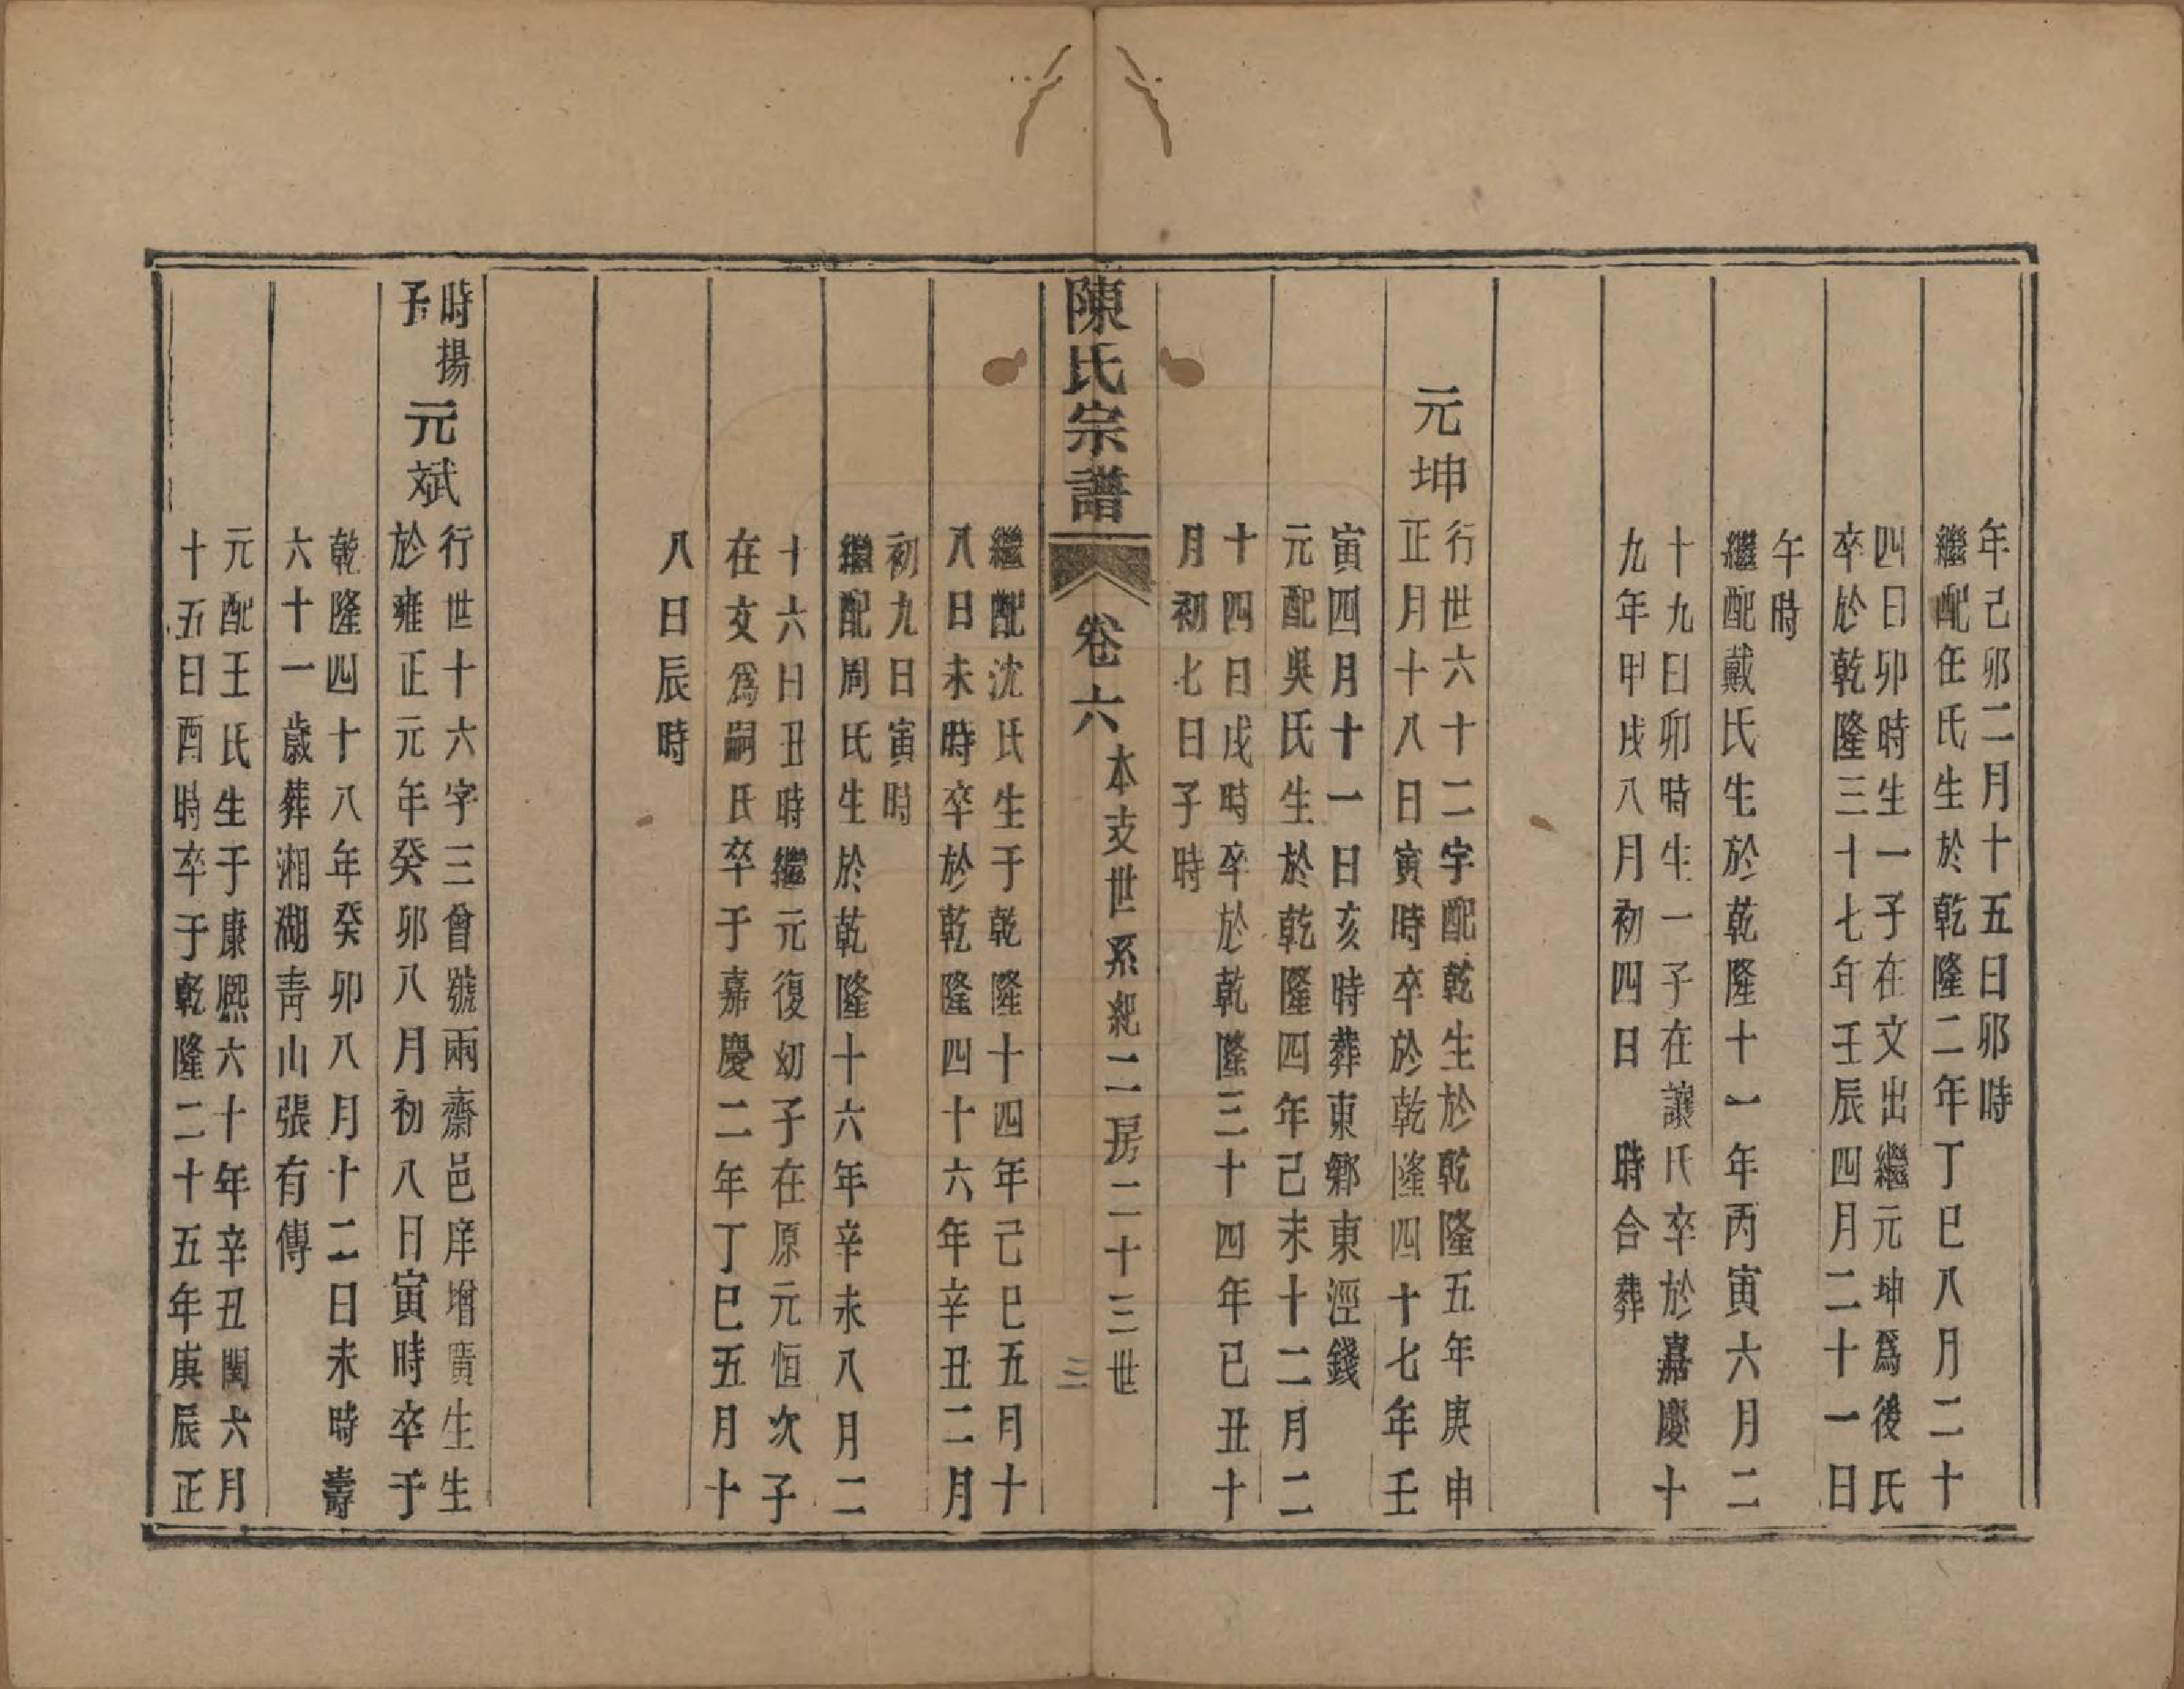 年己卯二月十五日卯時
繼配任氏生於乾隆二年丁巳八月二十
四日卯時生一子在文出繼元坤爲後氏
卒於乾隆三十七年壬辰四月二十一日
午時
繼配戴氏生於乾隆十一年丙寅六月二
十九日卯時生一子在讓氏卒於嘉慶十
九年甲戌八月初四日　時合葬
元坤
行世六十二字配乾生於乾隆五年庚申
正月十八日寅時卒於乾隆四十七年壬
寅四月十一日亥時葬東鄉東涇錢
元配吳氏生於乾隆四年己未十二月二
十四日戌時卒於乾隆三十四年已丑十
月初七日子時
陳氏宗譜
卷六
本支世系紀二房二十三世
三
繼配沈氏生于乾隆十四年己巳五月十
八日未時卒於乾隆四十六年辛丑二月
初九日寅時
繼配周氏生於乾隆十六年辛未八月二
十六日丑時繼元復幼子在原元恒次子
在文爲嗣氏卒于嘉慶二年丁巳五月十
八日辰時
時揚
子
元斌
行世十六字三曾號兩齋邑庠增廣生生
於雍正元年癸卯八月初八日寅時卒于
乾隆四十八年癸卯八月十二日未時壽
六十一歲葬湘湖靑山張有傳
元配王氏生于康熙六十年辛丑閏六月
十五日酉時卒于乾隆二十五年庚辰正